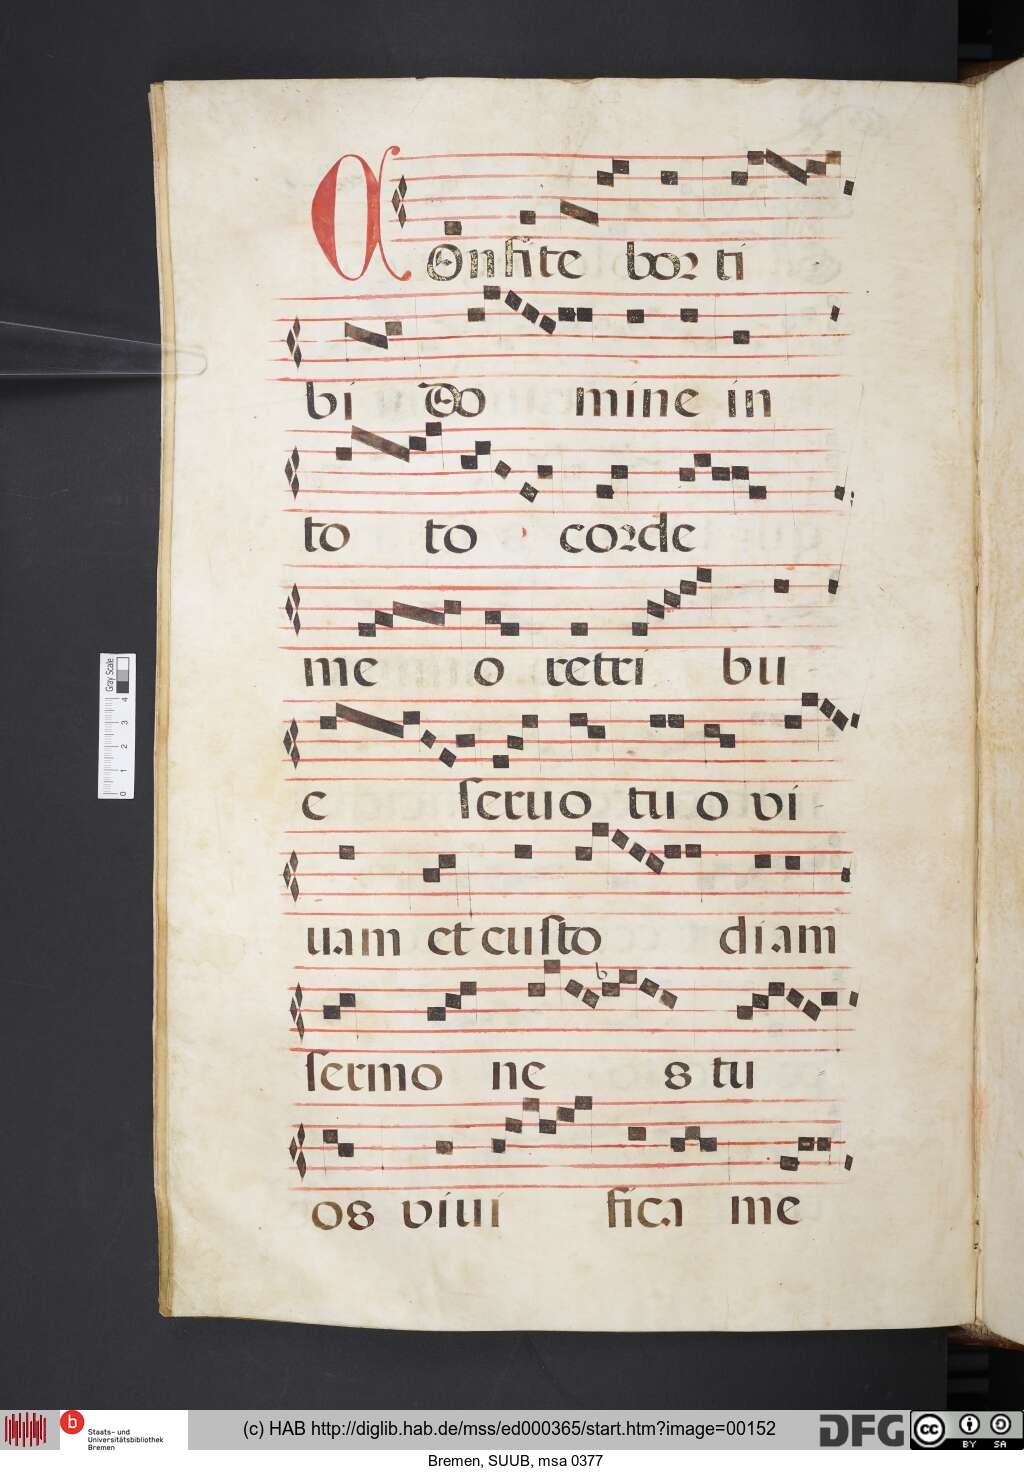 COnfite bor ti
bi Do mine in
to to corde
me o retri bu
e seruo tu o vi
uam et custo diam
sermo ne s tu
os viui fica me
Gray Scale
0 1 2 3 4
b
Staats- und
Universitätsbibliothek
Bremen
(c) HAB http://diglib.hab.de/mss/ed000365/start.htm?image=00152
DFG
cc BY SA
Bremen, SUUB, msa 0377